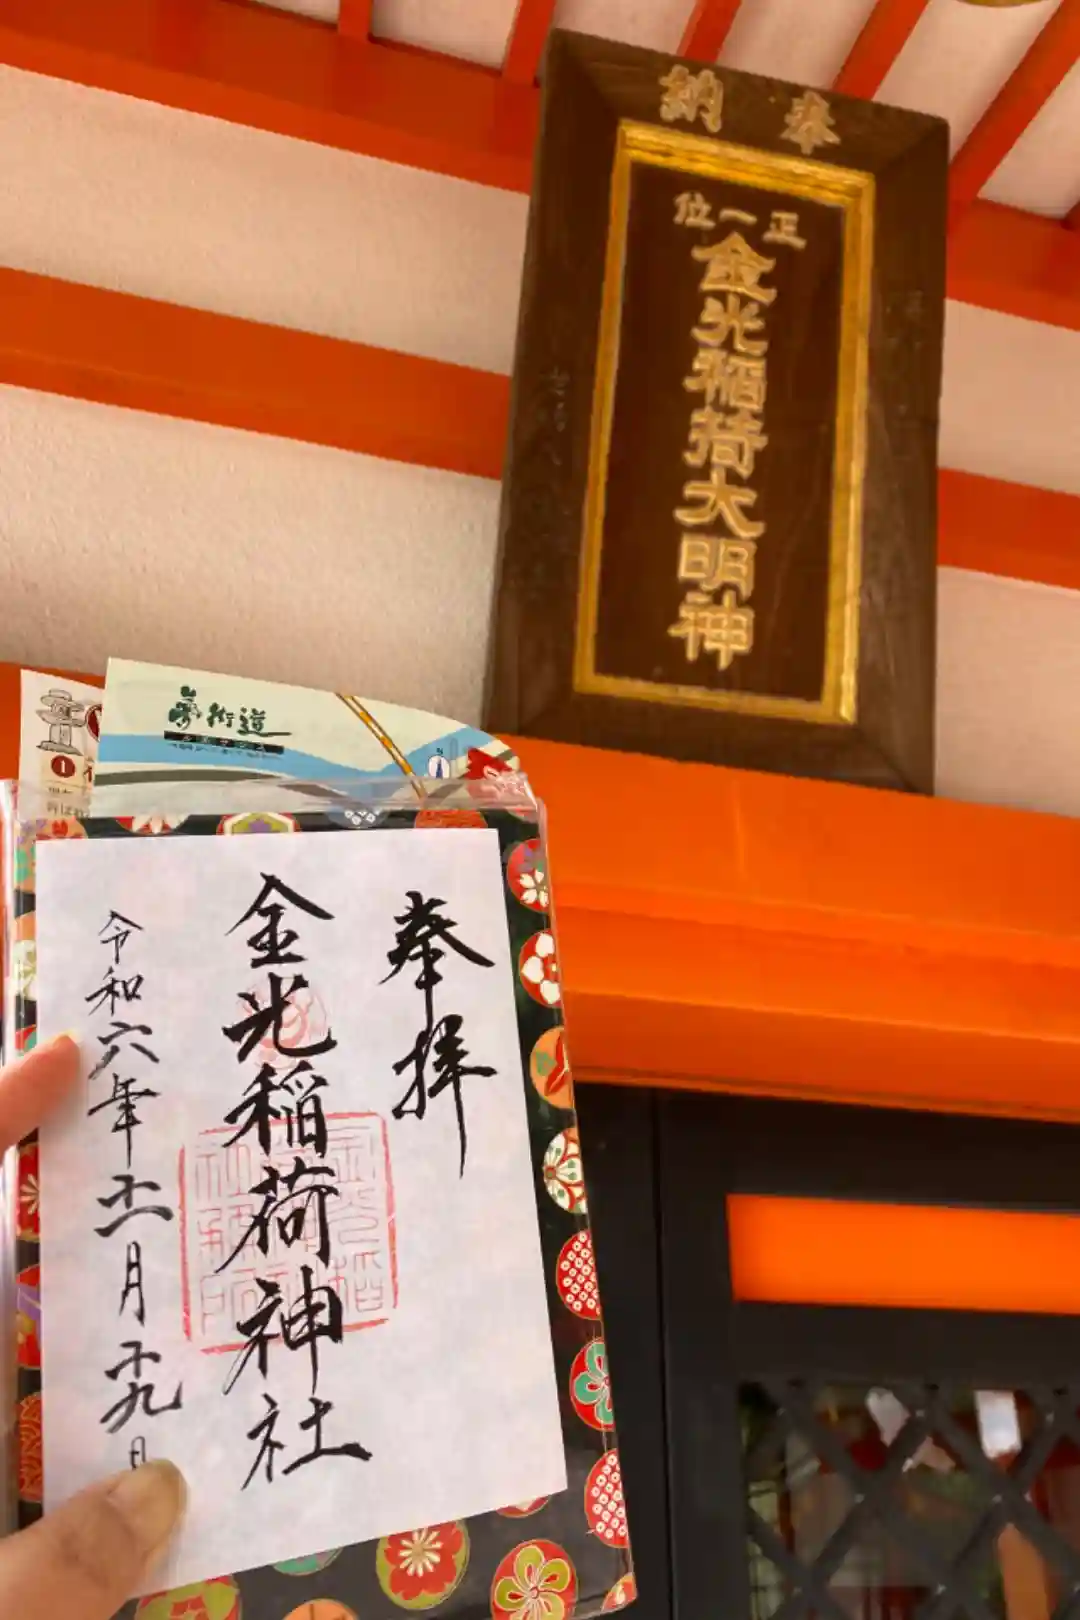 奉納
正一位
金光稲荷大明神
夢街道
1
奉拝
金光稲荷神社
令和六年十一月十九日